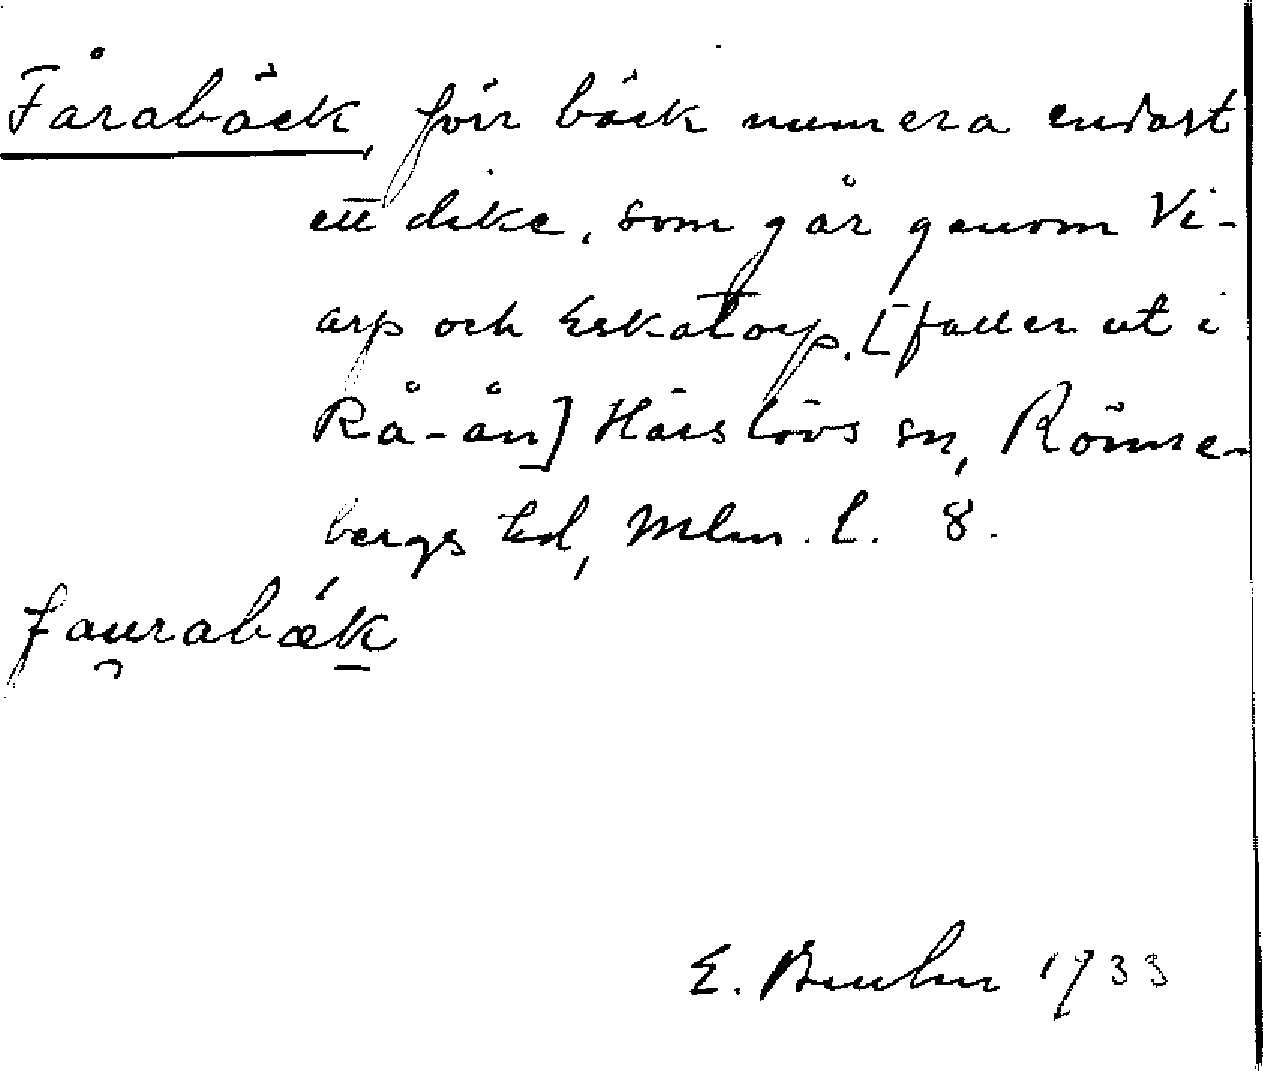 Fårabäck förr bäck numera endast
ett dike, som går genom Vi-
arp och Eskatorp. [faller ut i
Rå-ån] Härslövs sn, Rönne-
bergs hd, Mlm. L. 8.
fau̯rabǽk
E. Bruhn 1933